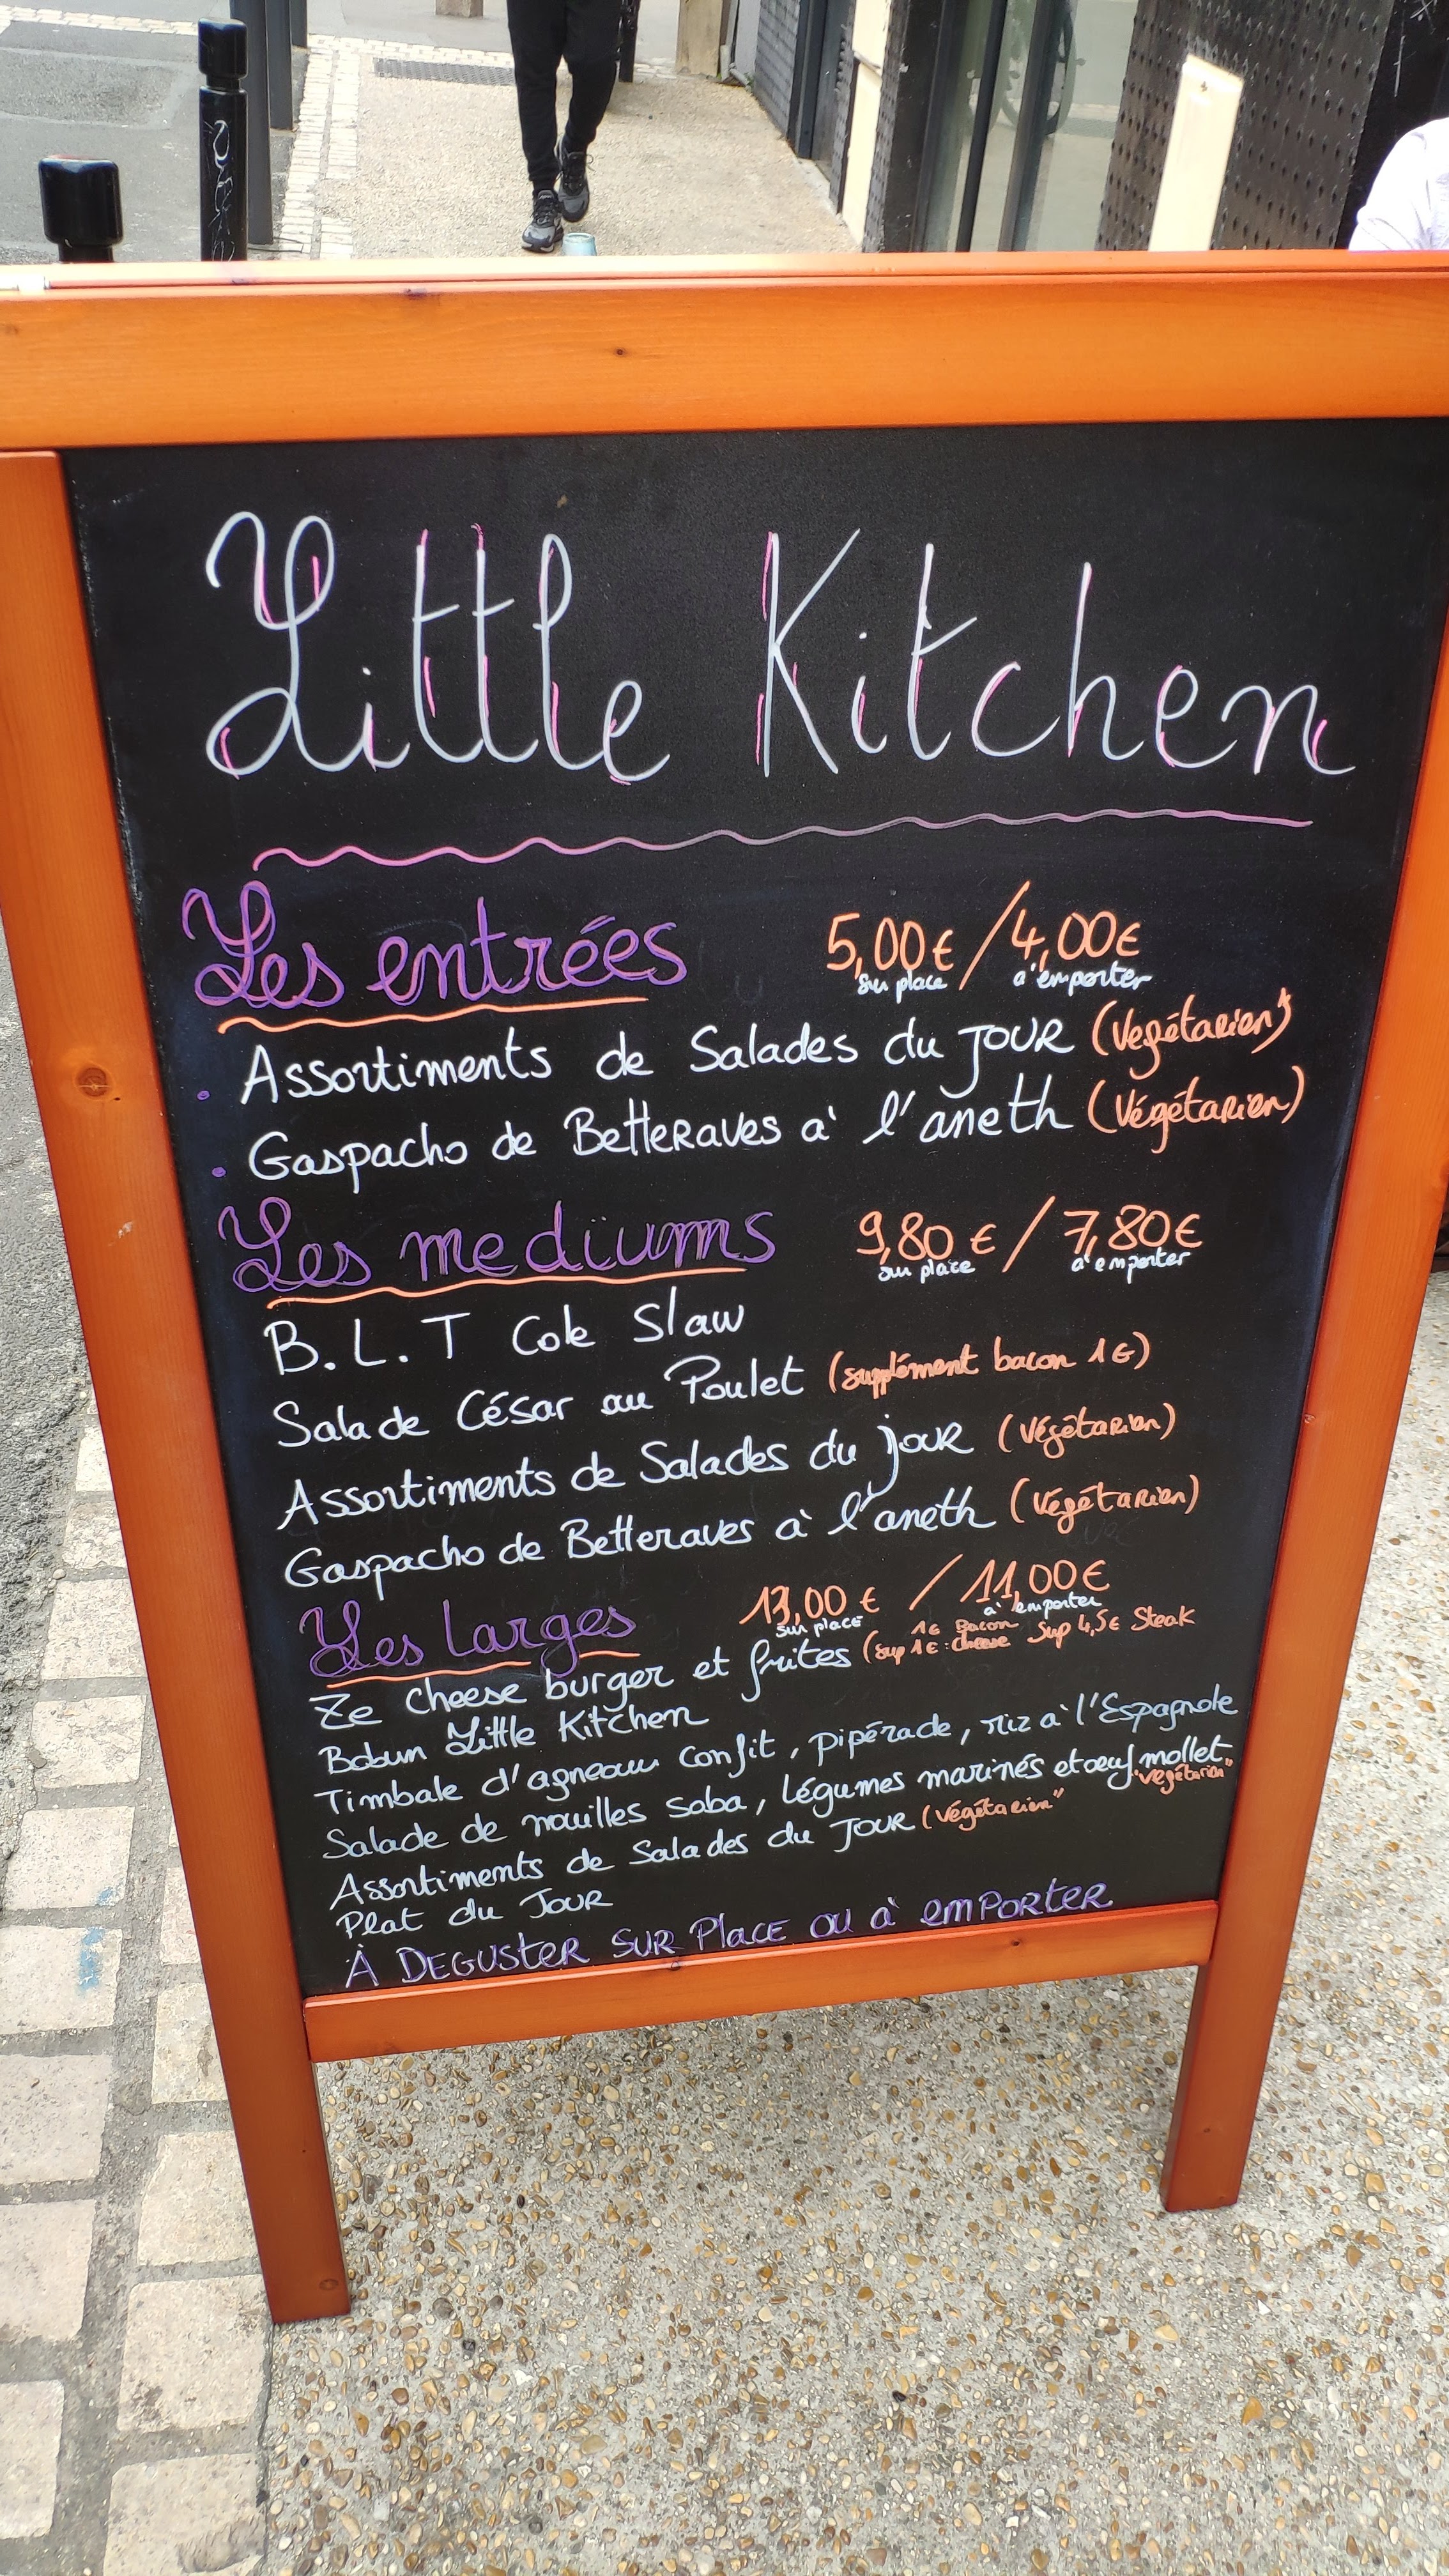 Little Kitchen
Les entrées 5,00€ / 4,00€
sur place à emporter
Assortiments de Salades du jour (Vegétarien)
Gaspacho de Betteraves à l'aneth (Végétarien)
Les mediums 9,80 € / 7,80€
sur place à emporter
B.L.T Cole Slaw
Salade César au Poulet (supplément bacon 1€)
Assortiments de Salades du jour (Végétarien)
Gaspacho de Betteraves à l'aneth (Végétarien)
Les larges 13,00 € / 11,00€
sur place à emporter
1€ Bacon
Ze cheese burger et frites (sup 1€: cheese sup 4,5€ Steak
Bobun Little Kitchen
Timbale d'agneau confit, pipérade, riz à l'Espagnole
Salade de nouilles soba, légumes marinés et oeuf mollet "végétarien"
Assortiments de Salades du Jour (Végétarien"
Plat du Jour
À DEGUSTER SUR Place ou à emPORTER